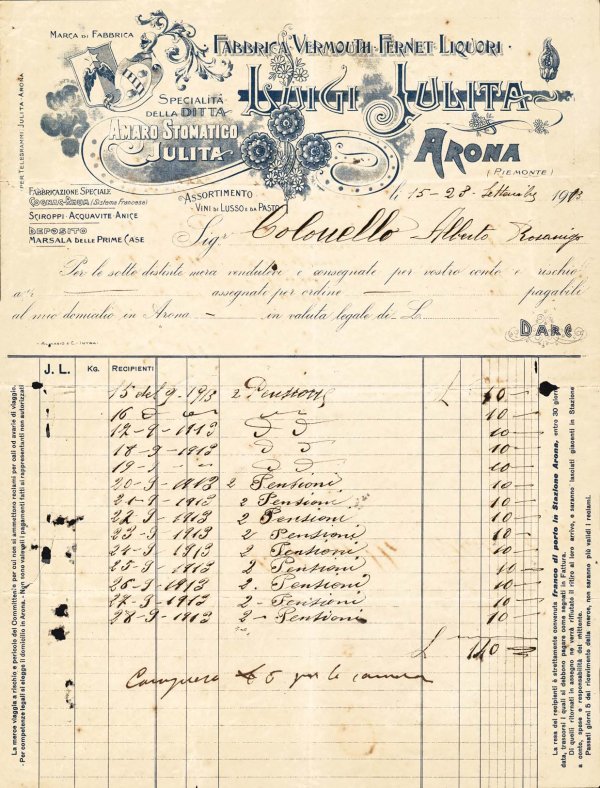 MARCA DI FABBRICA
FABBRICA VERMOUTH-FERNET-LIQUORI
LUIGI JULITA
PER TELEGRAMMI: JULITA-ARONA
SPECIALITÀ
DELLA DITTA
AMARO STOMATICO
JULITA
ARONA
(PIEMONTE)
FABBRICAZIONE SPECIALE
COGNAC-RHUM (Sistema Francese)
SCIROPPI-ACQUAVITE ANICE
DEPOSITO
MARSALA DELLE PRIME CASE
ASSORTIMENTO
VINI DI LUSSO E DA PASTO
li 15-28 Settembre 1913
Sigr Colonello Alberto
Per le sotto distinte merci vendutevi e consegnate per vostro conto e rischio
assegnate per ordine — pagabile
al mio domicilio in Arona — in valuta legale di L.
DARE
J. L. KG. RECIPIENTI
15 del 9-1913 2 Pensioni £ 10 —
16 10 —
17-9-1913 10 —
18-9-1913 10 —
19 10 —
20-9-1913 2 Pensioni 10 —
21-9-1913 2 Pensioni 10 —
22-9-1913 2 Pensioni 10 —
23-9-1913 2 Pensioni 10 —
24-9-1913 2 Pensioni 10 —
25-9-1913 2 Pensioni 10 —
26-9-1913 2. Pensioni 10 —
27-9-1913 2 - Pensioni 10 —
28-9-1913 2 - Pensioni 10 —
£ 140 —
5 per la camera
La merce viaggia a rischio e pericolo del Committente per cui non si ammettono reclami per cali od avarie di viaggio.
- Per competenze legali si elegge il domicilio in Arona. - Non sono valevoli i pagamenti fatti ai rappresentanti non autorizzati
La resa dei recipienti è strettamente convenuta franco di porto in Stazione Arona, entro 30 giorni
data, trascorsi i quali si debbono pagare come segnati in Fattura.
Di quelli ritornati in assegno ne verrà rifiutato il ritiro al loro arrivo, e saranno lasciati giacenti in Stazione
a conto, spese e responsabilità del mittente.
Passati giorni 5 dal ricevimento della merce, non saranno più validi i reclami.